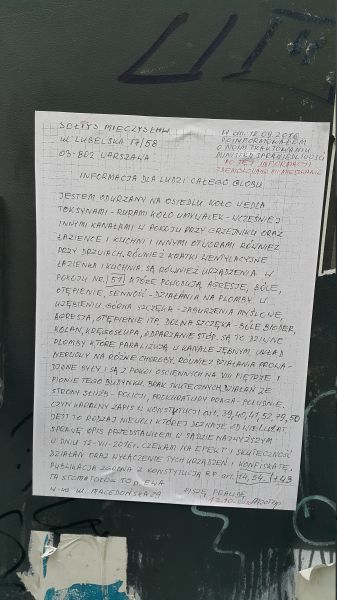 SOŁTYS MIECZYSŁAW
ul. LUBELSKA 17/58
03-802 WARSZAWA
W dn. 12.09.2016
POINFORMOWAŁEM
O MOIM TRAKTOWANIU
MINISTRA SPRAWIEDLIWOŚCI
PO TEJ INFORMACJI
ZDEMOLOWANO MI MIESZKANIE
INFORMACJA DLA LUDZI CAŁEGO GLOBU
JESTEM ODURZANY NA OSIEDLU KOŁO WEDLA
TOKSYNAMI - RURAMI KOŁO UMYWALEK - WCZEŚNIEJ
INNYMI KANAŁAMI W POKOJU PRZY GRZEJNIKU ORAZ
ŁAZIENCE I KUCHNI I INNYMI OTWORAMI RÓWNIEŻ
PRZY DRZWIACH, RÓWNIEŻ KRATKI WENTYLACYJNE
ŁAZIENKA I KUCHNIA. SĄ RÓWNIEŻ URZĄDZENIA W
POKOJU NR. 57 KTÓRE POWODUJĄ, AGRESJĘ, BÓLE,
OTĘPIENIE, SENNOŚĆ - DZIAŁANIA NA PLOMBY W
UZĘBIENIU GÓRNA SZCZĘKA - ZABURZENIA MYŚLOWE,
AGRESJA, OTĘPIENIE ITP. DOLNA SZCZĘKA - BÓLE BIODER,
KOLAN, KRĘGOSŁUPA, ODPARZANIE STÓP. SĄ TO DZIWNE
PLOMBY KTÓRE PARALIŻUJĄ W KANALE ZĘBNYM UKŁAD
NERWOWY NA RÓŻNE CHOROBY, RÓWNIEŻ DZIAŁANIA PROWA-
DZONE BYŁY I SĄ Z POKOI OŚCIENNYCH NA VIII PIĘTRZE I
PIONIE TEGO BUDYNKU. BRAK SKUTECZNYCH DZIAŁAŃ ZE
STRONY SŁUŻB - POLICJI, PROKURATURY PRAGA - POŁUDNIE.
CZYM KARALNY ZAPIS W KONSTYTUCJI art. 39, 40, 47, 52, 75, 50
JEST TO RODZAJ NIEWOLI KTÓREJ DOZNAJE OD WIELU LAT
SPRAWĘ OPIS PRZEDSTAWIŁEM W SĄDZIE NAJWYŻSZYM
W DNIU 12-VII-2016r. CZEKAM NA EFEKT I SKUTECZNOŚĆ
DZIAŁAŃ ORAZ WYŁĄCZENIE TYCH URZĄDZEŃ I KONFISKATĘ.
PUBLIKACJA ZGODNA Z KONSTYTUCJĄ RP art. 14, 54, 1, 43
TA STOMATOLOG TO EWA
UL. MACEDOŃSKA
PISZĘ PRAWDĘ